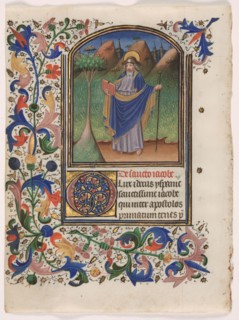 De sancto iacobo.
Lux et decus yspanie
sanctissime iacobe
qui inter apostolos
primatum tenes p